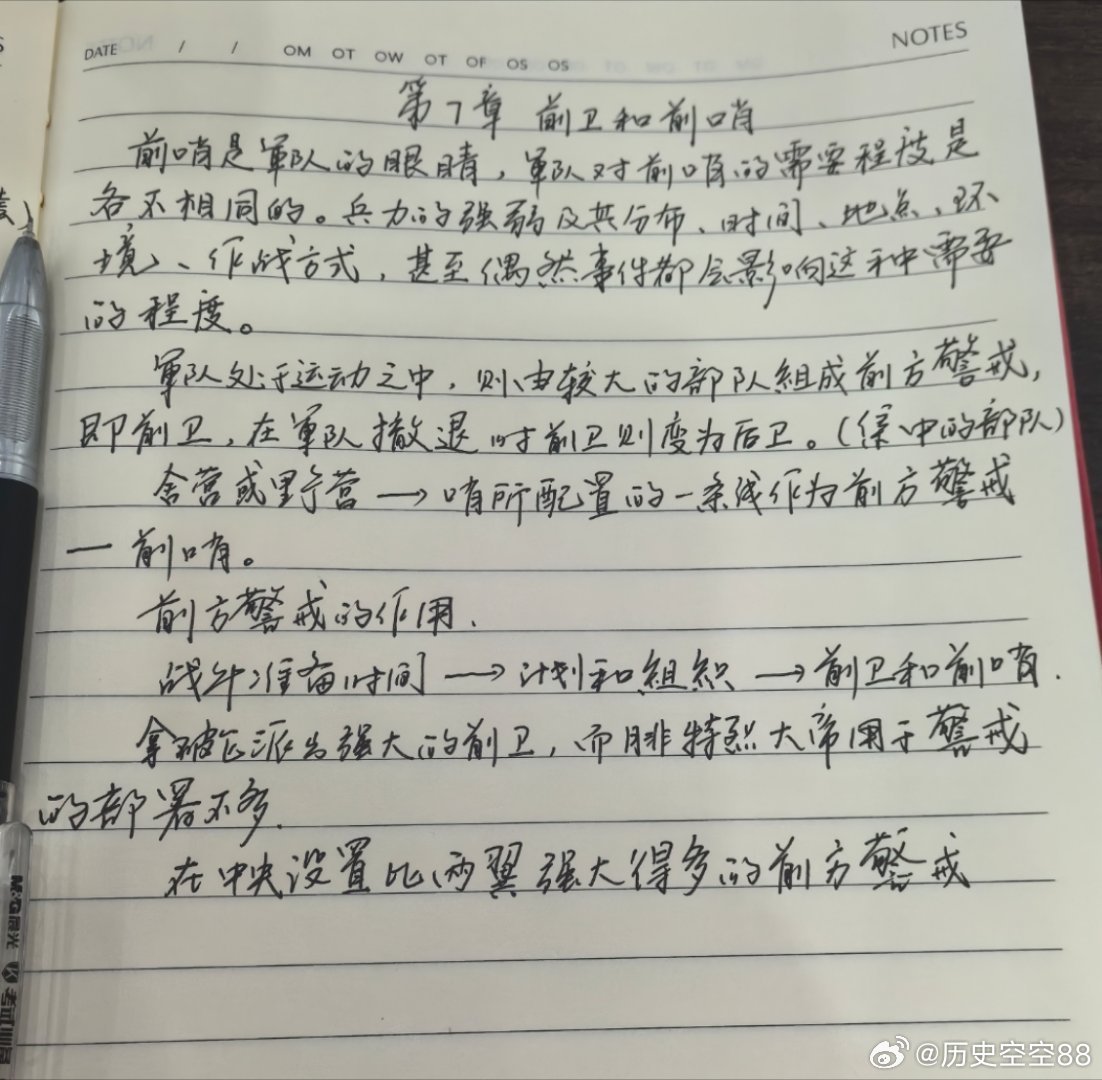 DATE / / OM OT OW OT OF OS OS
NOTES
第7章 前卫和前哨
前哨是軍队的眼睛,軍队对前哨的需要程度是
各不相同的。兵力的强弱及其分布、时间、地点、环
境、作战方式,甚至偶然事件都会影响这种需要
的程度。
軍队处于运动之中,则由较大的部队組成前方警戒,
即前卫,在軍队撤退时前卫则变为后卫。(集中的部队)
舍营或野营→哨所配置的一条线作为前方警戒
—前哨。
前方警戒的作用.
战斗准备时间→计划和組織→前卫和前哨.
拿破仑派出强大的前卫,而腓特烈大帝用于警戒
的部署不多.
在中央设置比两翼强大得多的前方警戒
M&G晨光
@历史空空88